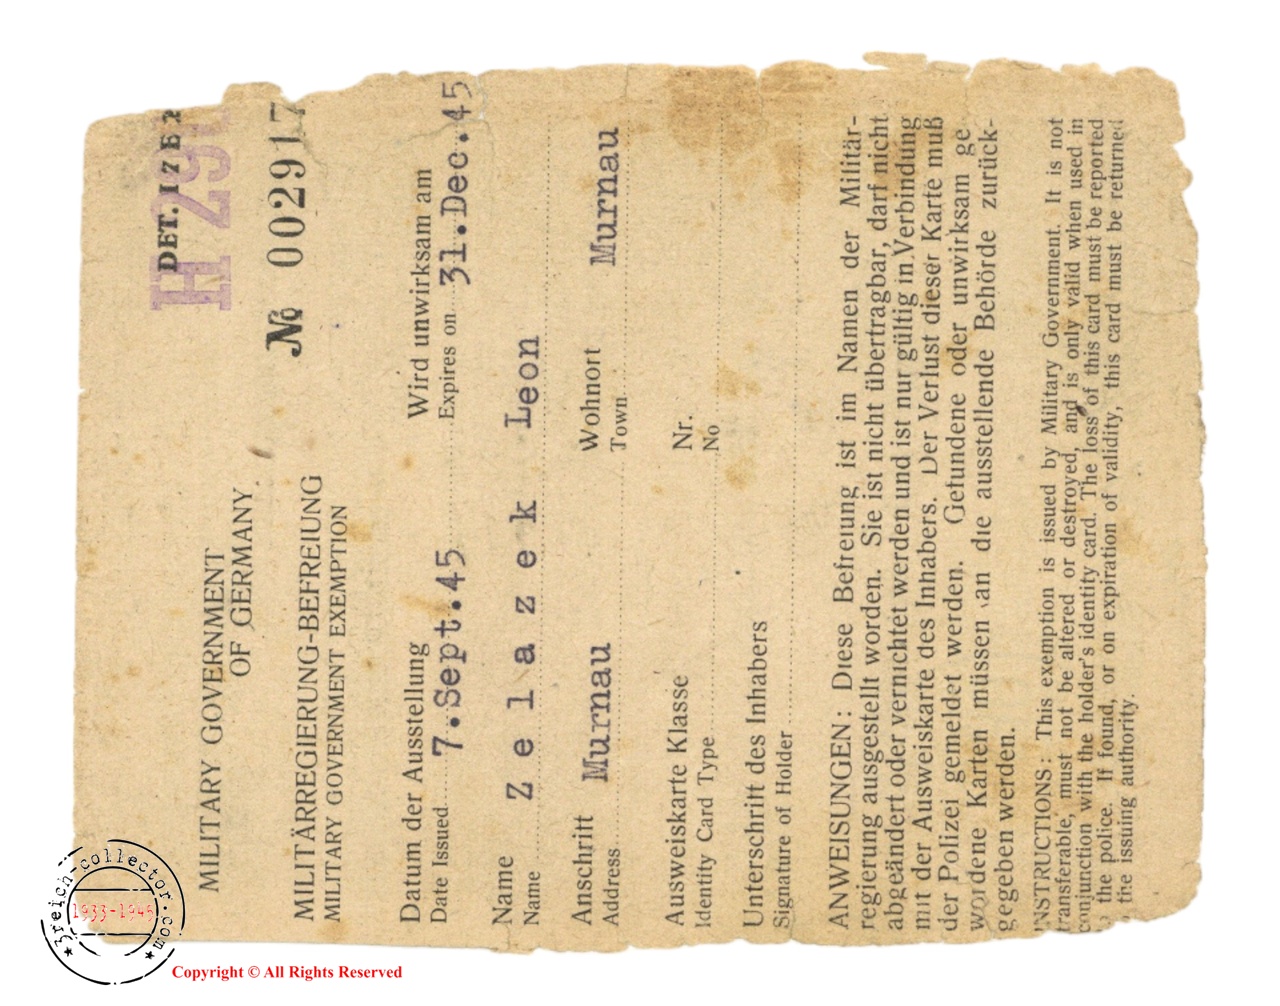 DET. I7E2
H 291
№ 002917
MILITARY GOVERNMENT
OF GERMANY
MILITÄRREGIERUNG-BEFREIUNG
MILITARY GOVERNMENT EXEMPTION
Datum der Ausstellung Wird unwirksam am
Date Issued 7.Sept.45 Expires on 31.Dec.45
Name
Name Zelazek Leon
Anschrift Wohnort
Address Murnau Town Murnau
Ausweiskarte Klasse Nr.
Identity Card Type No
Unterschrift des Inhabers
Signature of Holder
ANWEISUNGEN: Diese Befreiung ist im Namen der Militär-
regierung ausgestellt worden. Sie ist nicht übertragbar, darf nicht
abgeändert oder vernichtet werden und ist nur gültig in Verbindung
mit der Ausweiskarte des Inhabers. Der Verlust dieser Karte muß
der Polizei gemeldet werden. Gefundene oder unwirksam ge
wordene Karten müssen an die ausstellende Behörde zurück-
gegeben werden.
INSTRUCTIONS: This exemption is issued by Military Government. It is not
transferable, must not be altered or destroyed, and is only valid when used in
conjunction with the holder's identity card. The loss of this card must be reported
to the police. If found, or on expiration of validity, this card must be returned
to the issuing authority.
3reich-collector.com
1933-1945
Copyright © All Rights Reserved